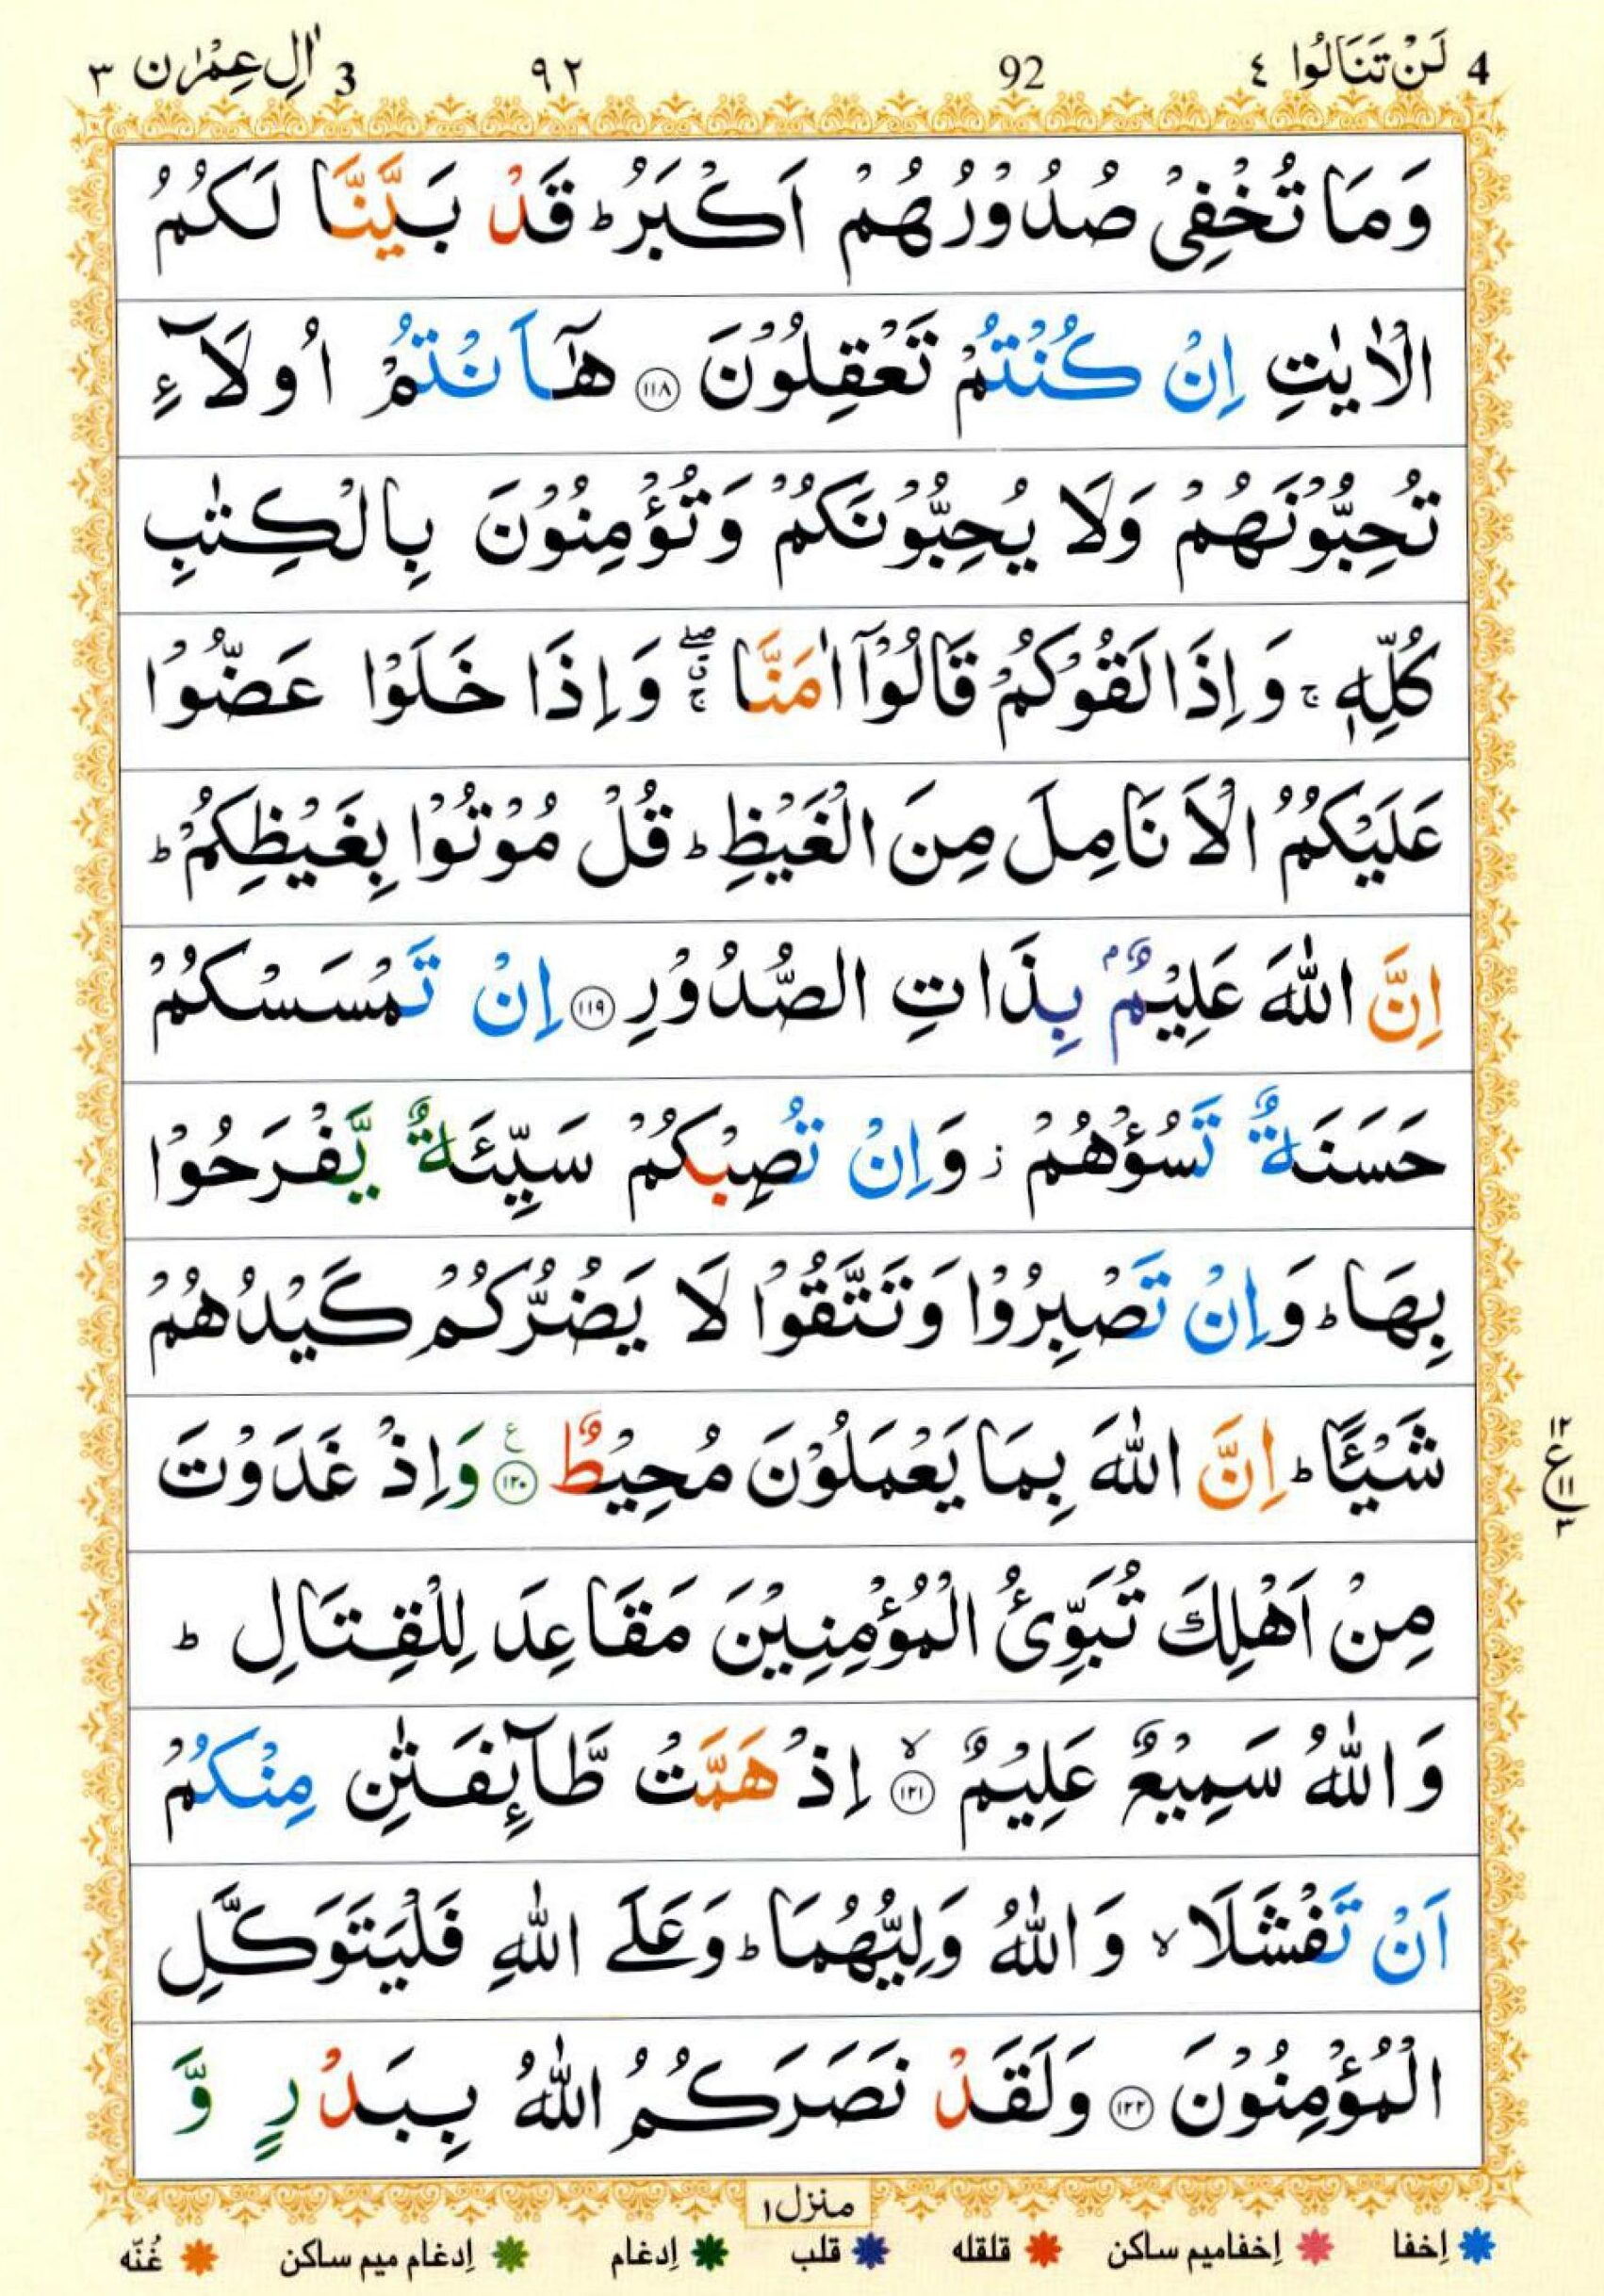 4 لَنْ تَنَالُوا ٤ 92 ٩٢ 3 اٰلِ عِمْرٰن ٣
وَمَا تُخْفِیْ صُدُوْرُهُمْ اَكْبَرُ ؕ قَدْ بَیَّنَّا لَكُمُ
الْاٰیٰتِ اِنْ كُنْتُمْ تَعْقِلُوْنَ ۝۱۱۸ هٰۤاَنْتُمْ اُولَآءِ
تُحِبُّوْنَهُمْ وَلَا یُحِبُّوْنَكُمْ وَتُؤْمِنُوْنَ بِالْكِتٰبِ
كُلِّهٖ ۚ وَاِذَا لَقُوْكُمْ قَالُوْۤا اٰمَنَّا ۖۗۚ وَاِذَا خَلَوْا عَضُّوْا
عَلَیْكُمُ الْاَنَامِلَ مِنَ الْغَیْظِ ؕ قُلْ مُوْتُوْا بِغَیْظِكُمْ ؕ
اِنَّ اللّٰهَ عَلِیْمٌۢ بِذَاتِ الصُّدُوْرِ ۝۱۱۹ اِنْ تَمْسَسْكُمْ
حَسَنَةٌ تَسُؤْهُمْ ؗ وَاِنْ تُصِبْكُمْ سَیِّئَةٌ یَّفْرَحُوْا
بِهَا ؕ وَاِنْ تَصْبِرُوْا وَتَتَّقُوْا لَا یَضُرُّكُمْ كَیْدُهُمْ
شَیْـًٔا ؕ اِنَّ اللّٰهَ بِمَا یَعْمَلُوْنَ مُحِیْطٌ ۝۱۲۰ ع وَاِذْ غَدَوْتَ
۱۲ ع ۱۱ ۳
مِنْ اَهْلِكَ تُبَوِّئُ الْمُؤْمِنِیْنَ مَقَاعِدَ لِلْقِتَالِ ؕ
وَاللّٰهُ سَمِیْعٌ عَلِیْمٌ ۝۱۲۱ ۙ اِذْ هَمَّتْ طَّآىِٕفَتٰنِ مِنْكُمْ
اَنْ تَفْشَلَا ۙ وَاللّٰهُ وَلِیُّهُمَا ؕ وَعَلَی اللّٰهِ فَلْیَتَوَكَّلِ
الْمُؤْمِنُوْنَ ۝۱۲۲ وَلَقَدْ نَصَرَكُمُ اللّٰهُ بِبَدْرٍ وَّ
منزل ۱
إخفا إخفا میم ساکن قلقله قلب إدغام إدغام میم ساکن غُنّه